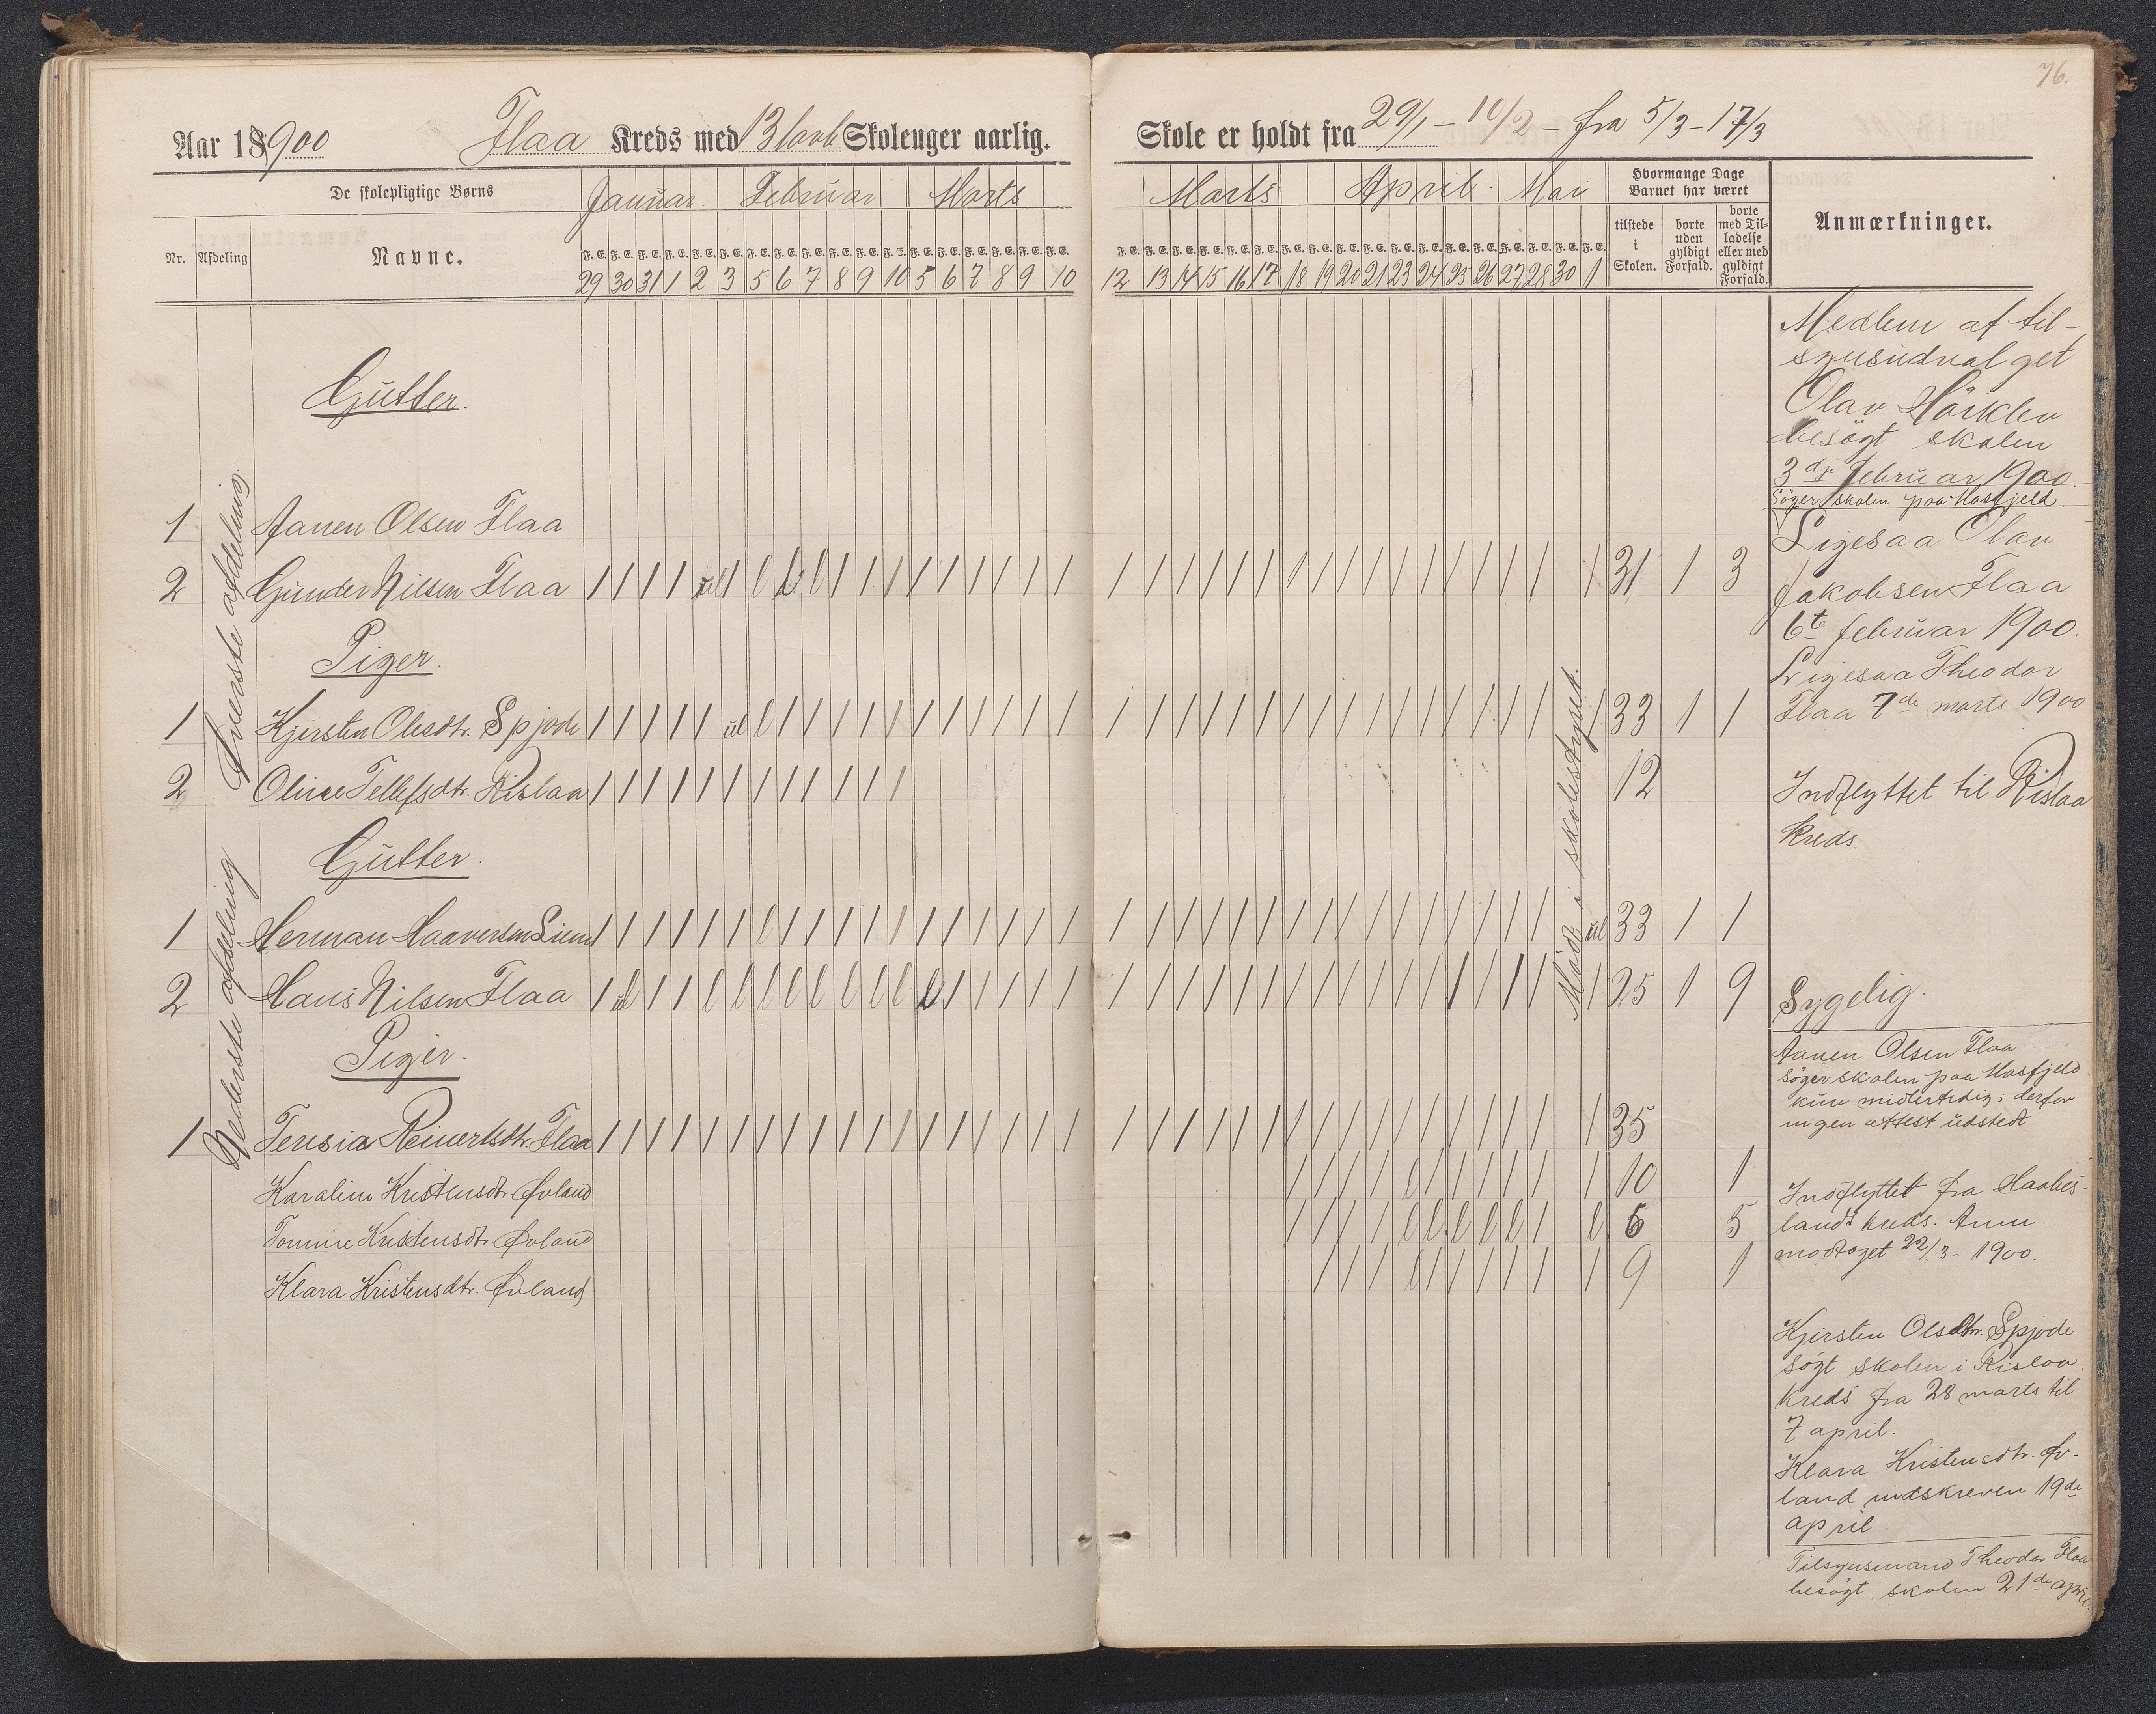 76.
Aar 18900 Flaa Kreds med 13 Skoleuger aarlig.
Skole er holdt fra 29/1 - 10/2 - fra 5/3 - 17/3
De skolepligtige Børns Januar. Februar Marts
Marts April. Mai Hvormange Dage Barnet har været
Nr. Afdeling Navne.
F. E. F. E. F. E. F. E. F. E. F. E. F. E. F. E. F. E. F. E. F. E. F. E. F. E. F. E. F. E. F. E. F. E. F. E.
29 30 31 1 2 3 5 6 7 8 9 10 5 6 7 8 9 10
F. E. F. E. F. E. F. E. F. E. F. E. F. E. F. E. F. E. F. E. F. E. F. E. F. E. F. E. F. E. F. E. F. E. F. E.
12 13 14 15 16 17 18 19 20 21 23 24 25 26 27 28 30 1
tilstede i Skolen.
borte uden gyldigt Forfald.
borte med Tilladelse eller med gyldigt Forfald.
Anmærkninger.
Øverste afdeling
Gutter.
1 Aanen Olsen Flaa
2 Gunder Nilsen Flaa 31 1 3
Piger.
1 Kjirsten Olesdtr. Spjode 33 1 1
2 Oline Tellefsdtr. Rislaa 12
Nederste afdeling
Gutter.
1 Herman Haaversen Liene 33 1 1
2. Hans Nilsen Flaa 25 1 9
Piger.
1 Teresia Reinertsdtr. Flaa 35
Karaline Kristensdtr. Øvland 10 1
Tomine Kristensdtr. Øvland 5 5
Klara Kristensdtr. Øvland 9 1
Møde i skolestyret.
Medlem af til-
synsudvalget
Olav
besøgt skolen
3dje februar 1900.
Søger skolen paa Hasfjeld
Ligesaa Olav
Jakobsen Flaa
6te februar 1900.
Ligesaa Theodor
Flaa 7de marts 1900
Indflyttet til Rislaa
kreds.
Sygelig.
Aanen Olsen Flaa
søger skolen paa Hasfjeld
kun midlertidig; derfor
ingen attest udstedt.
Indflyttet fra Haabes-
lands kreds. Anm.
modtaget 22/3 - 1900.
Kjirsten Olsdtr. Spjode
søgt skolen i Rislaa
kreds fra 28 marts til
7 april.
Klara Kristensdtr. Øv-
land indskreven 19de
april.
Tilsynsmand Theodor Flaa
besøgt skolen 21de april.